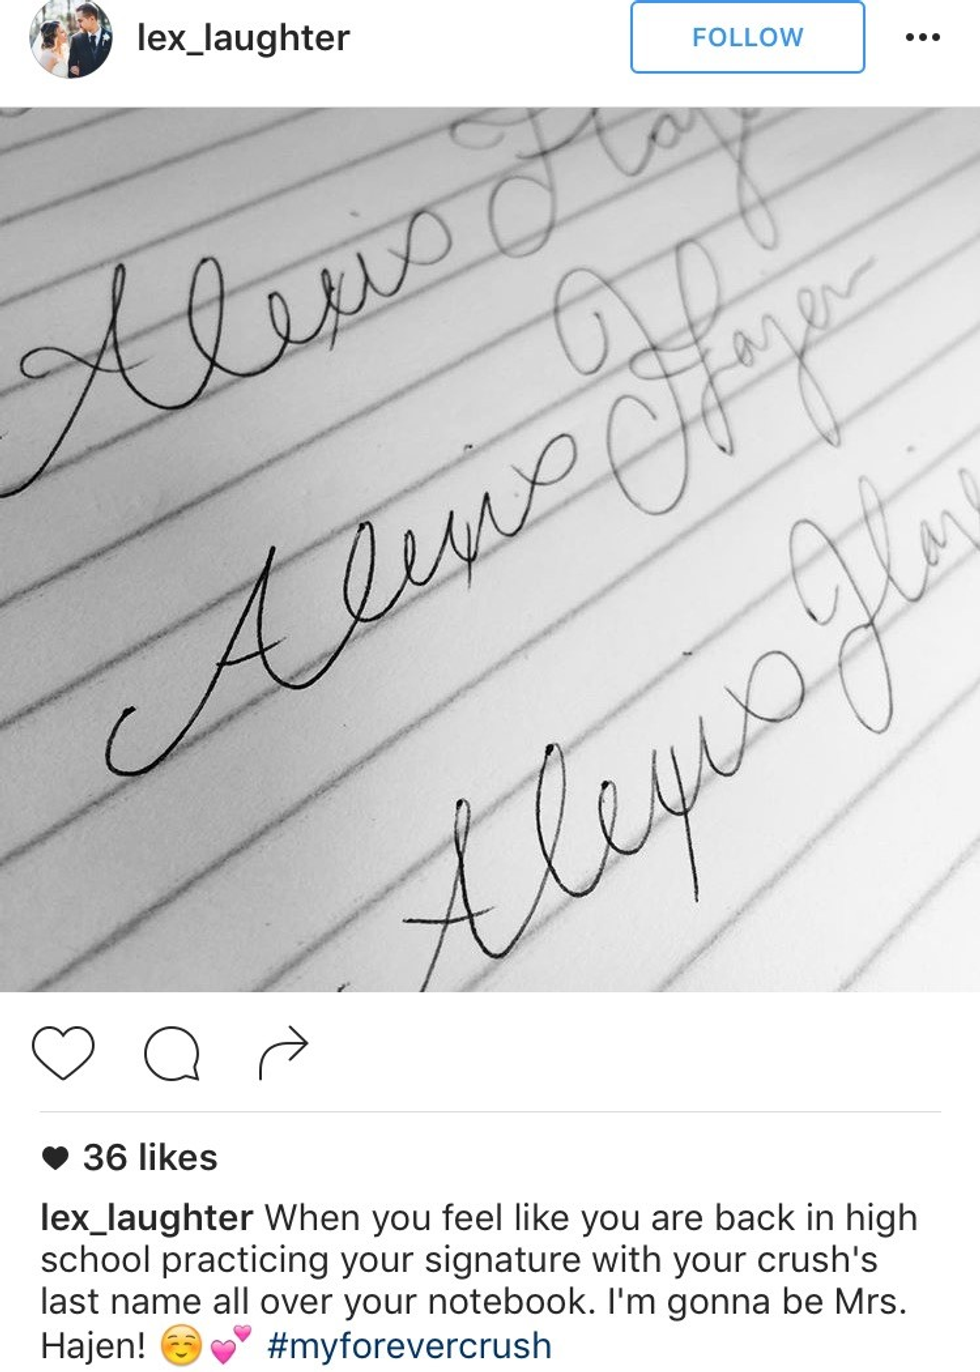 lex_laughter
FOLLOW
Alexis
Alexis
Alexis
36 likes
lex_laughter When you feel like you are back in high
school practicing your signature with your crush's
last name all over your notebook. I'm gonna be Mrs.
Hajen! ☺️💕 #myforevercrush